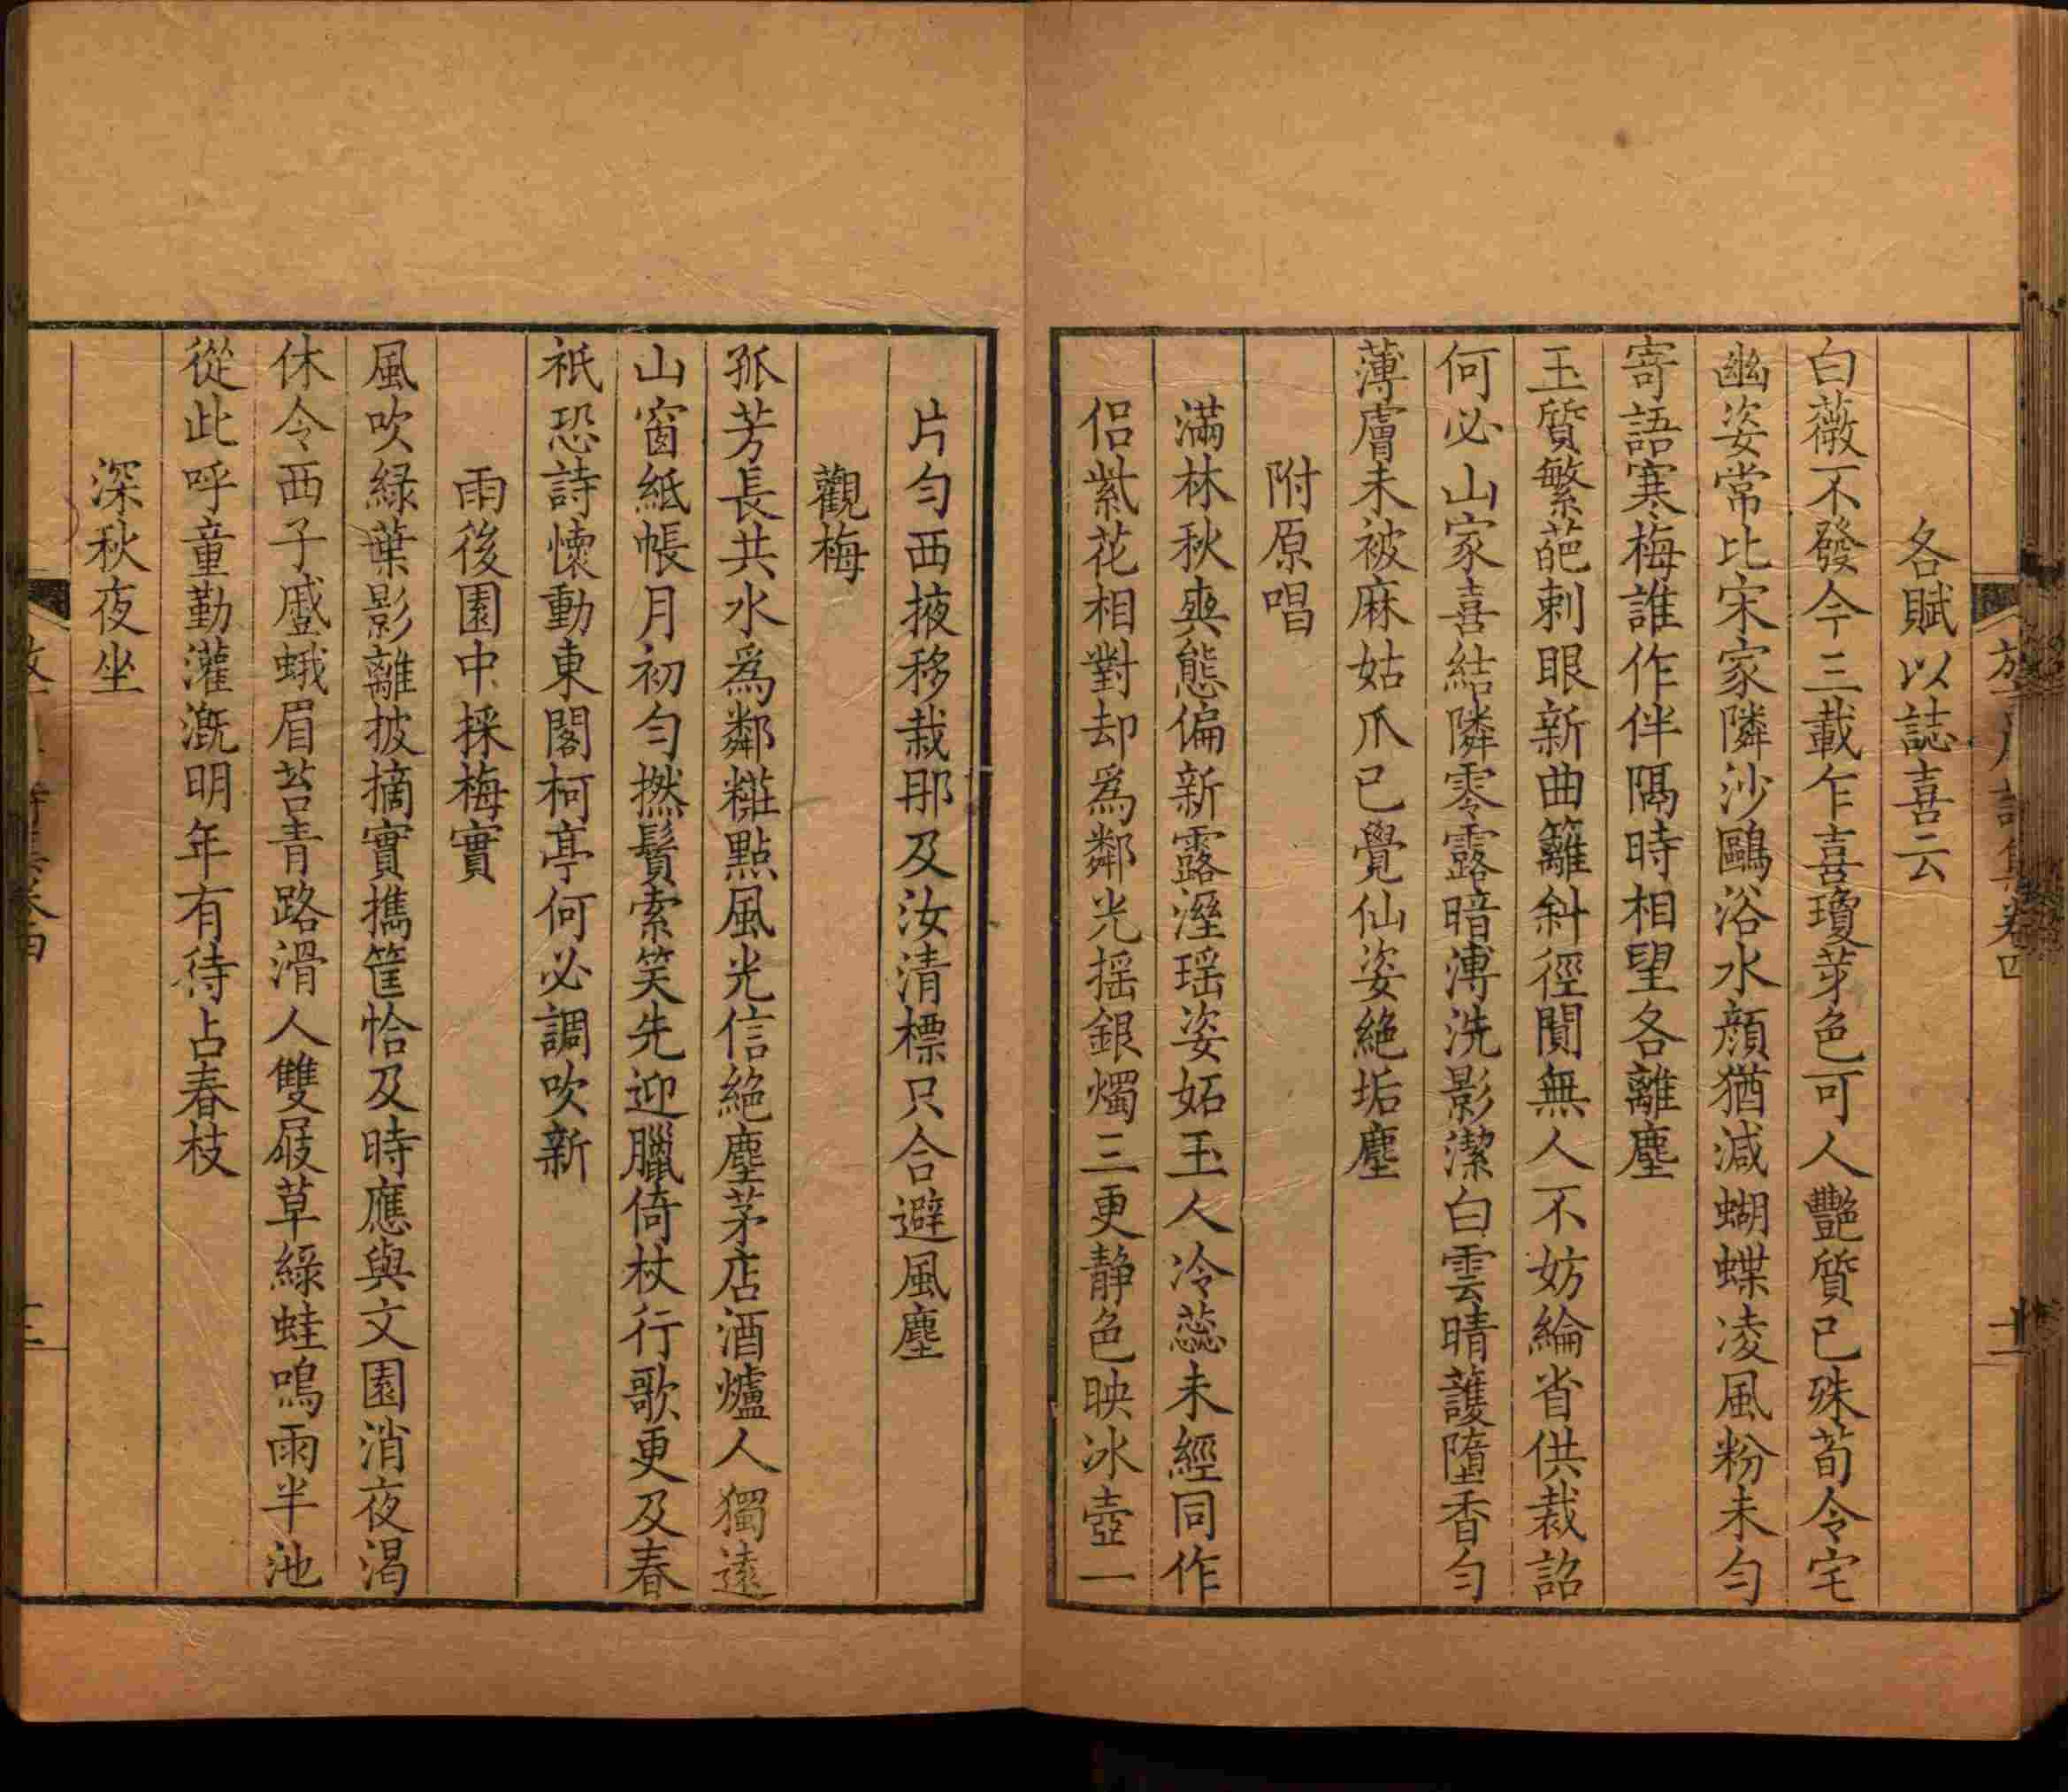 各賦以誌喜云
白薇不發今三載乍喜瓊芽色可人艷質已殊荀令宅
幽姿常比宋家隣沙鷗浴水顏猶減蝴蝶凌風粉未勻
寄語寒梅誰作伴隔時相望各離塵
玉質繁葩刺眼新曲籬斜徑閴無人不妨綸省供裁詔
何必山家喜結隣零露暗溥洗影潔白雲晴護墮香勻
薄膚未被麻姑爪已覺仙姿絕垢塵
附原唱
滿林秋爽態偏新露溼瑶姿妬玉人冷蕊未經同作
侶紫花相對却爲鄰光揺銀燭三更静色映冰壺一
片勻西掖移栽那及汝清標只合避風塵
觀梅
孤芳長共水爲鄰糚點風光信絕塵茅店酒爐人獨遠
山窗紙帳月初勻撚鬚索笑先迎臘倚杖行歌更及春
祇恐詩懷動東閣柯亭何必調吹新
雨後園中採梅實
風吹綠葉影離披摘實攜筐恰及時應與文園消夜渴
休令西子蹙蛾眉苔青路滑人雙屐草綠蛙鳴雨半池
從此呼童勤灌漑明年有待占春枝
深秋夜坐